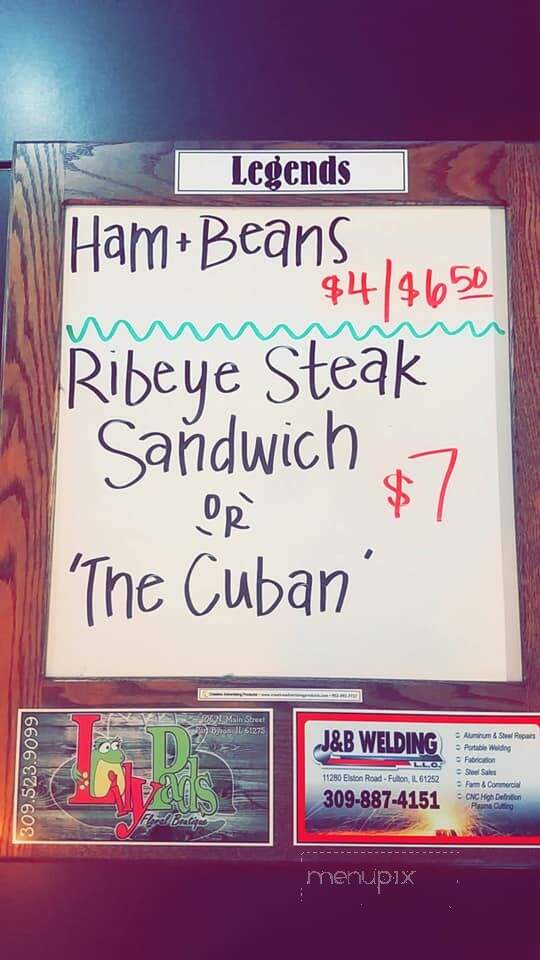 Legends
Ham + Beans
$4/$6 50
Ribeye Steak
Sandwich
$7
OR
'The Cuban'
309.523.9099
Main Street
Port Byron, IL 61275
LilyPads
Floral Boutique
J&B WELDING
L.L.C.
11280 Elston Road - Fulton, IL 61252
309-887-4151
Aluminum & Steel Repairs
Portable Welding
Fabrication
Steel Sales
Farm & Commercial
CNC High Definition
Plasma Cutting
menupix